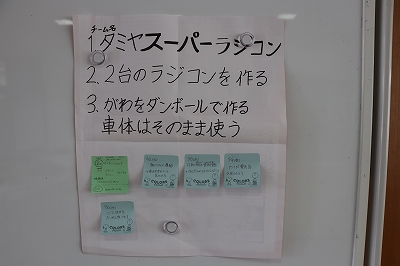 チーム名
1.タミヤスーパーラジコン
2.2台のラジコンを作る
3.がわをダンボールで作る
車体はそのまま使う
COLORS
COLORS
COLORS
COLORS